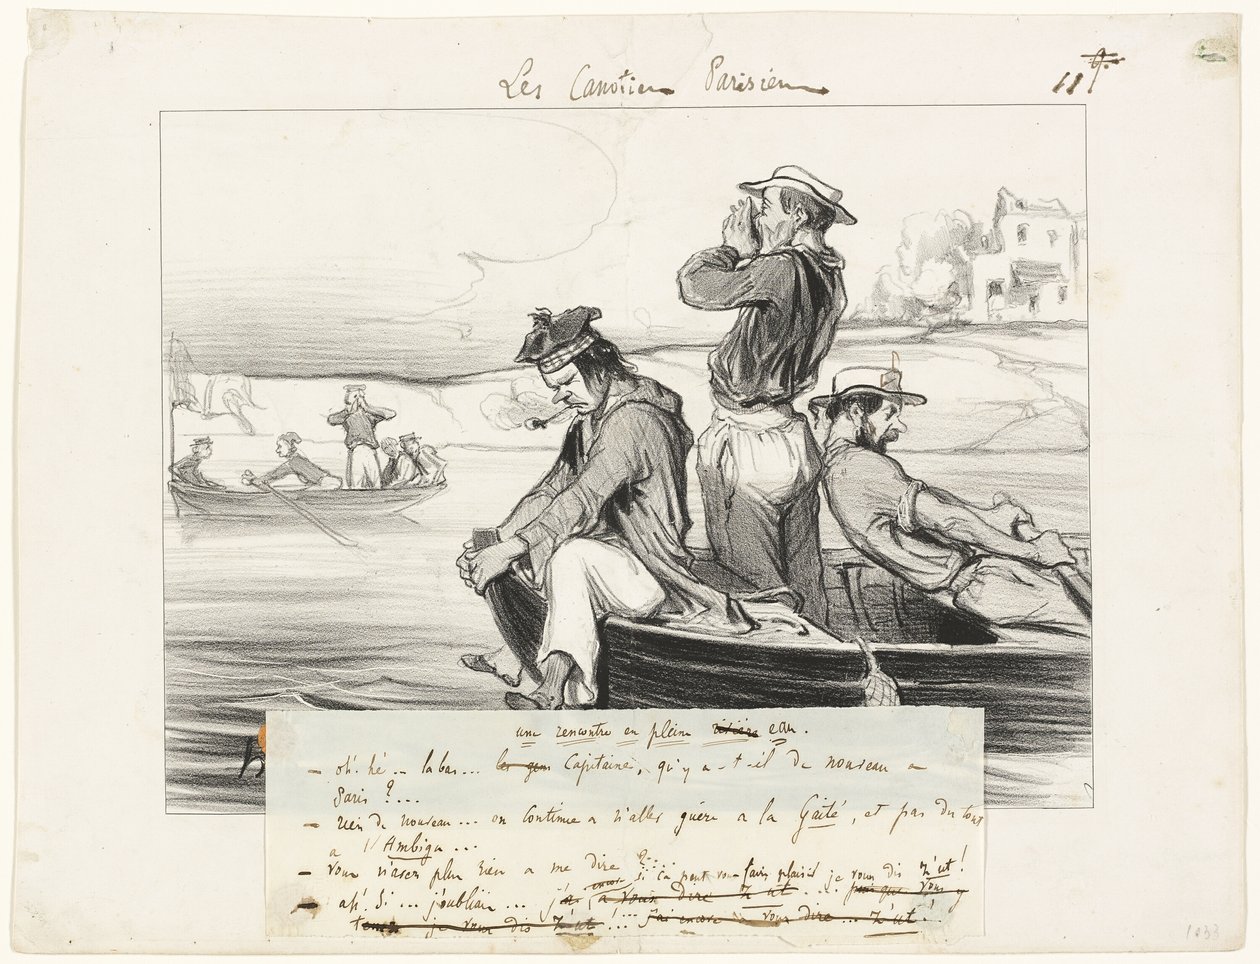 Les Canotiers Parisiens
11
une rencontre en pleine rivière eau.
— oh! hé ... la bas... les gens Capitaine, qu'y a-t-il de nouveau a
Paris ?...
— rien de nouveau... on continue a n'aller guère a la Gaité, et pas du tout
a l'Ambigu ...
— vous n'avez plus rien a me dire ?...
encore si ça peut vous faire plaisir je vous dis z'ut!
— ah! si ... j'oubliais ... j'ai à vous dire z'ut ... puisque vous y
tenez je vous dis z'ut! ... j'ai encore à vous dire ... z'ut!
1033